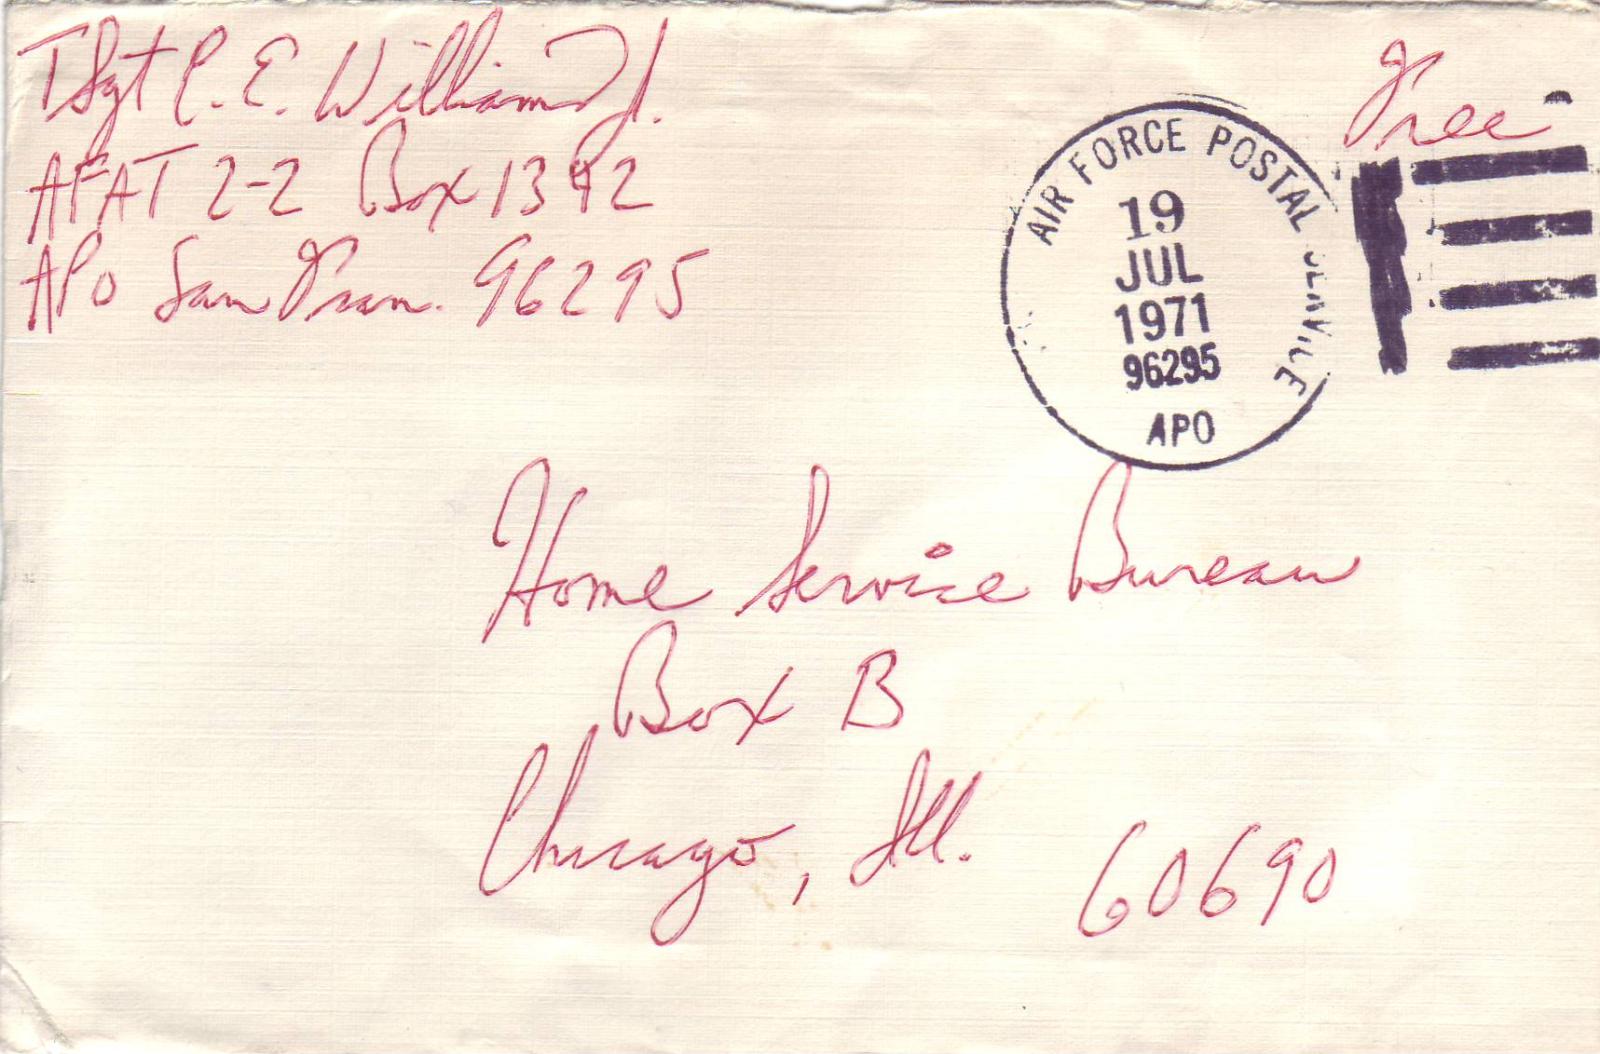 TSgt C. E. Williams Jr.
AFAT 2-2 Box 1392
APO San Fran. 96295
Free
AIR FORCE POSTAL SERVICE
19
JUL
1971
96295
APO
Home Service Bureau
Box B
Chicago, Ill. 60690